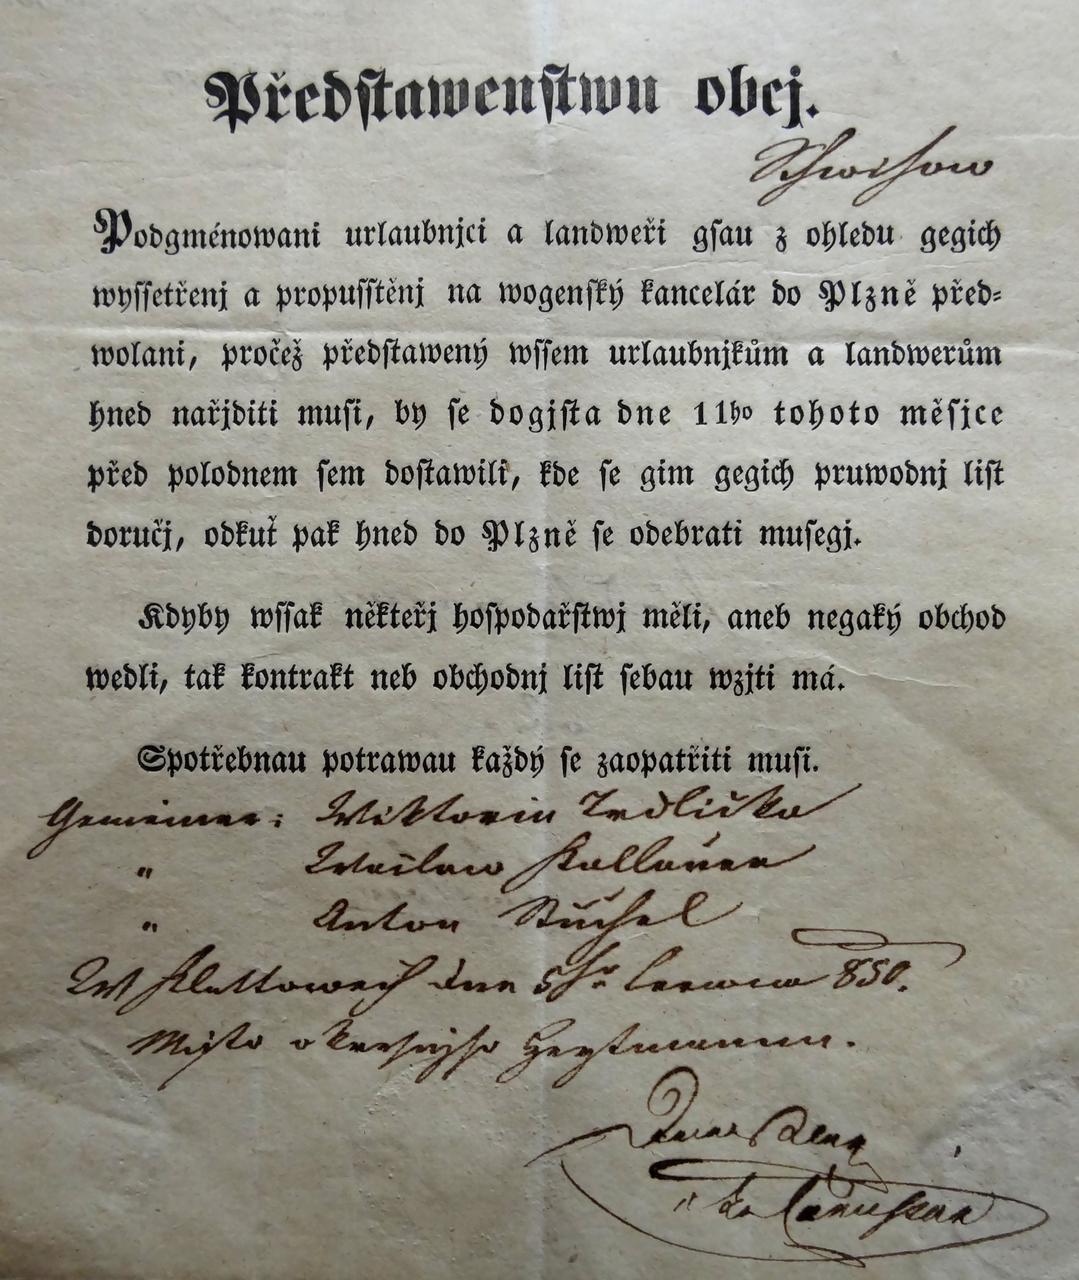 Předstawenstwu obcj.
Schwihow
Podgménowani urlaubnjci a landweři gsau z ohledu gegich
wyssetřenj a propusstěnj na wogenský kancelár do Plzně před-
wolani, pročež předstawený wssem urlaubnjkům a landwerům
hned nařjditi musi, by se dogjsta dne 11ho tohoto měsjce
před polodnem sem dostawili, kde se gim gegich pruwodnj list
doručj, odkuť pak hned do Plzně se odebrati musegj.
Kdyby wssak někteřj hospodařstwj měli, aneb negaký obchod
wedli, tak kontrakt neb obchodnj list sebau wzjti má.
Spotřebnau potrawau každý se zaopatřiti musi.
Gemeiner: Wiktorin Trdlička
" Wazlaw
" Anton
W Klattowech dne 5ho 850.
Misto okresnjho Heytmanna.